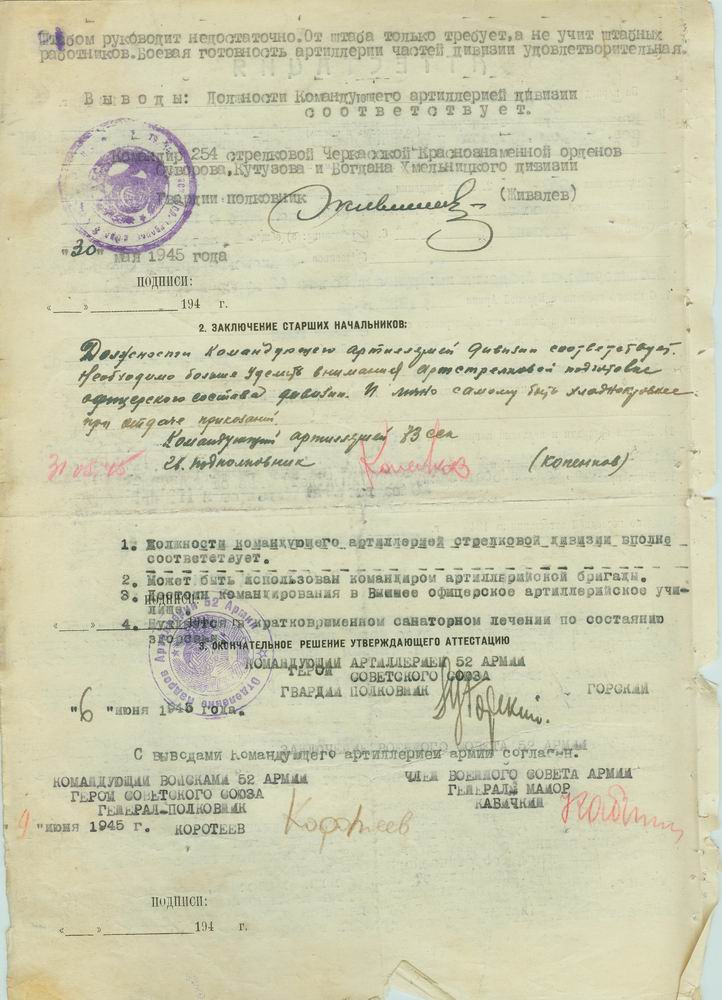 Штабом руководит недостаточно.От штаба только требует,а не учит штабных
работников.Боевая готовность артиллерии частей дивизии удовлетворительная.
Выводы: Должности Командующего артиллерией дивизии
соответствует.
Командир 254 стрелковой Черкасской Краснознаменной орденов
Суворова,Кутузова и Богдана Хмельницкого дивизии
Гвардии полковник (Живалев)
"30" мая 1945 года
ПОДПИСИ:
«___»________194 г.
2. ЗАКЛЮЧЕНИЕ СТАРШИХ НАЧАЛЬНИКОВ:
Должности командующего артиллерией дивизии соответствует.
Необходимо больше уделить внимания артстрелковой подготовке
офицерского состава дивизии. И лично самому быть хладнокровнее
при отдаче приказаний.
Командующий артиллерией 73 сек
31.05.45 гв. подполковник Копенков (Копенков)
1. Должности командующего артиллерией стрелковой дивизии вполне
соответствует.
2. Может быть использован командиром артиллерийской бригады.
3. Достоин командирования в Высшее офицерское артиллерийское учи-
лище.
ПОДПИСИ:
4. Нуждается в кратковременном санаторном лечении по состоянию
здоровья.
3. ОКОНЧАТЕЛЬНОЕ РЕШЕНИЕ УТВЕРЖДАЮЩЕГО АТТЕСТАЦИЮ
Отделение Кадров Арт 52 Армии
КОМАНДУЮЩИЙ АРТИЛЛЕРИЕЙ 52 АРМИИ
ГЕРОЙ СОВЕТСКОГО СОЮЗА
ГВАРДИИ ПОЛКОВНИК Горский ГОРСКИЙ
"6 "июня 1945 года.
С выводами Командующего артиллерией армии согласен.
КОМАНДУЮЩИЙ ВОЙСКАМИ 52 АРМИИ
ГЕРОЙ СОВЕТСКОГО СОЮЗА
ГЕНЕРАЛ-ПОЛКОВНИК
КОРОТЕЕВ Коротеев
ЧЛЕН ВОЕННОГО СОВЕТА АРМИИ
ГЕНЕРАЛ МАЙОР
КАБИЧКИН
"9 "июня 1945 г.
ПОДПИСИ:
«___»________194 г.